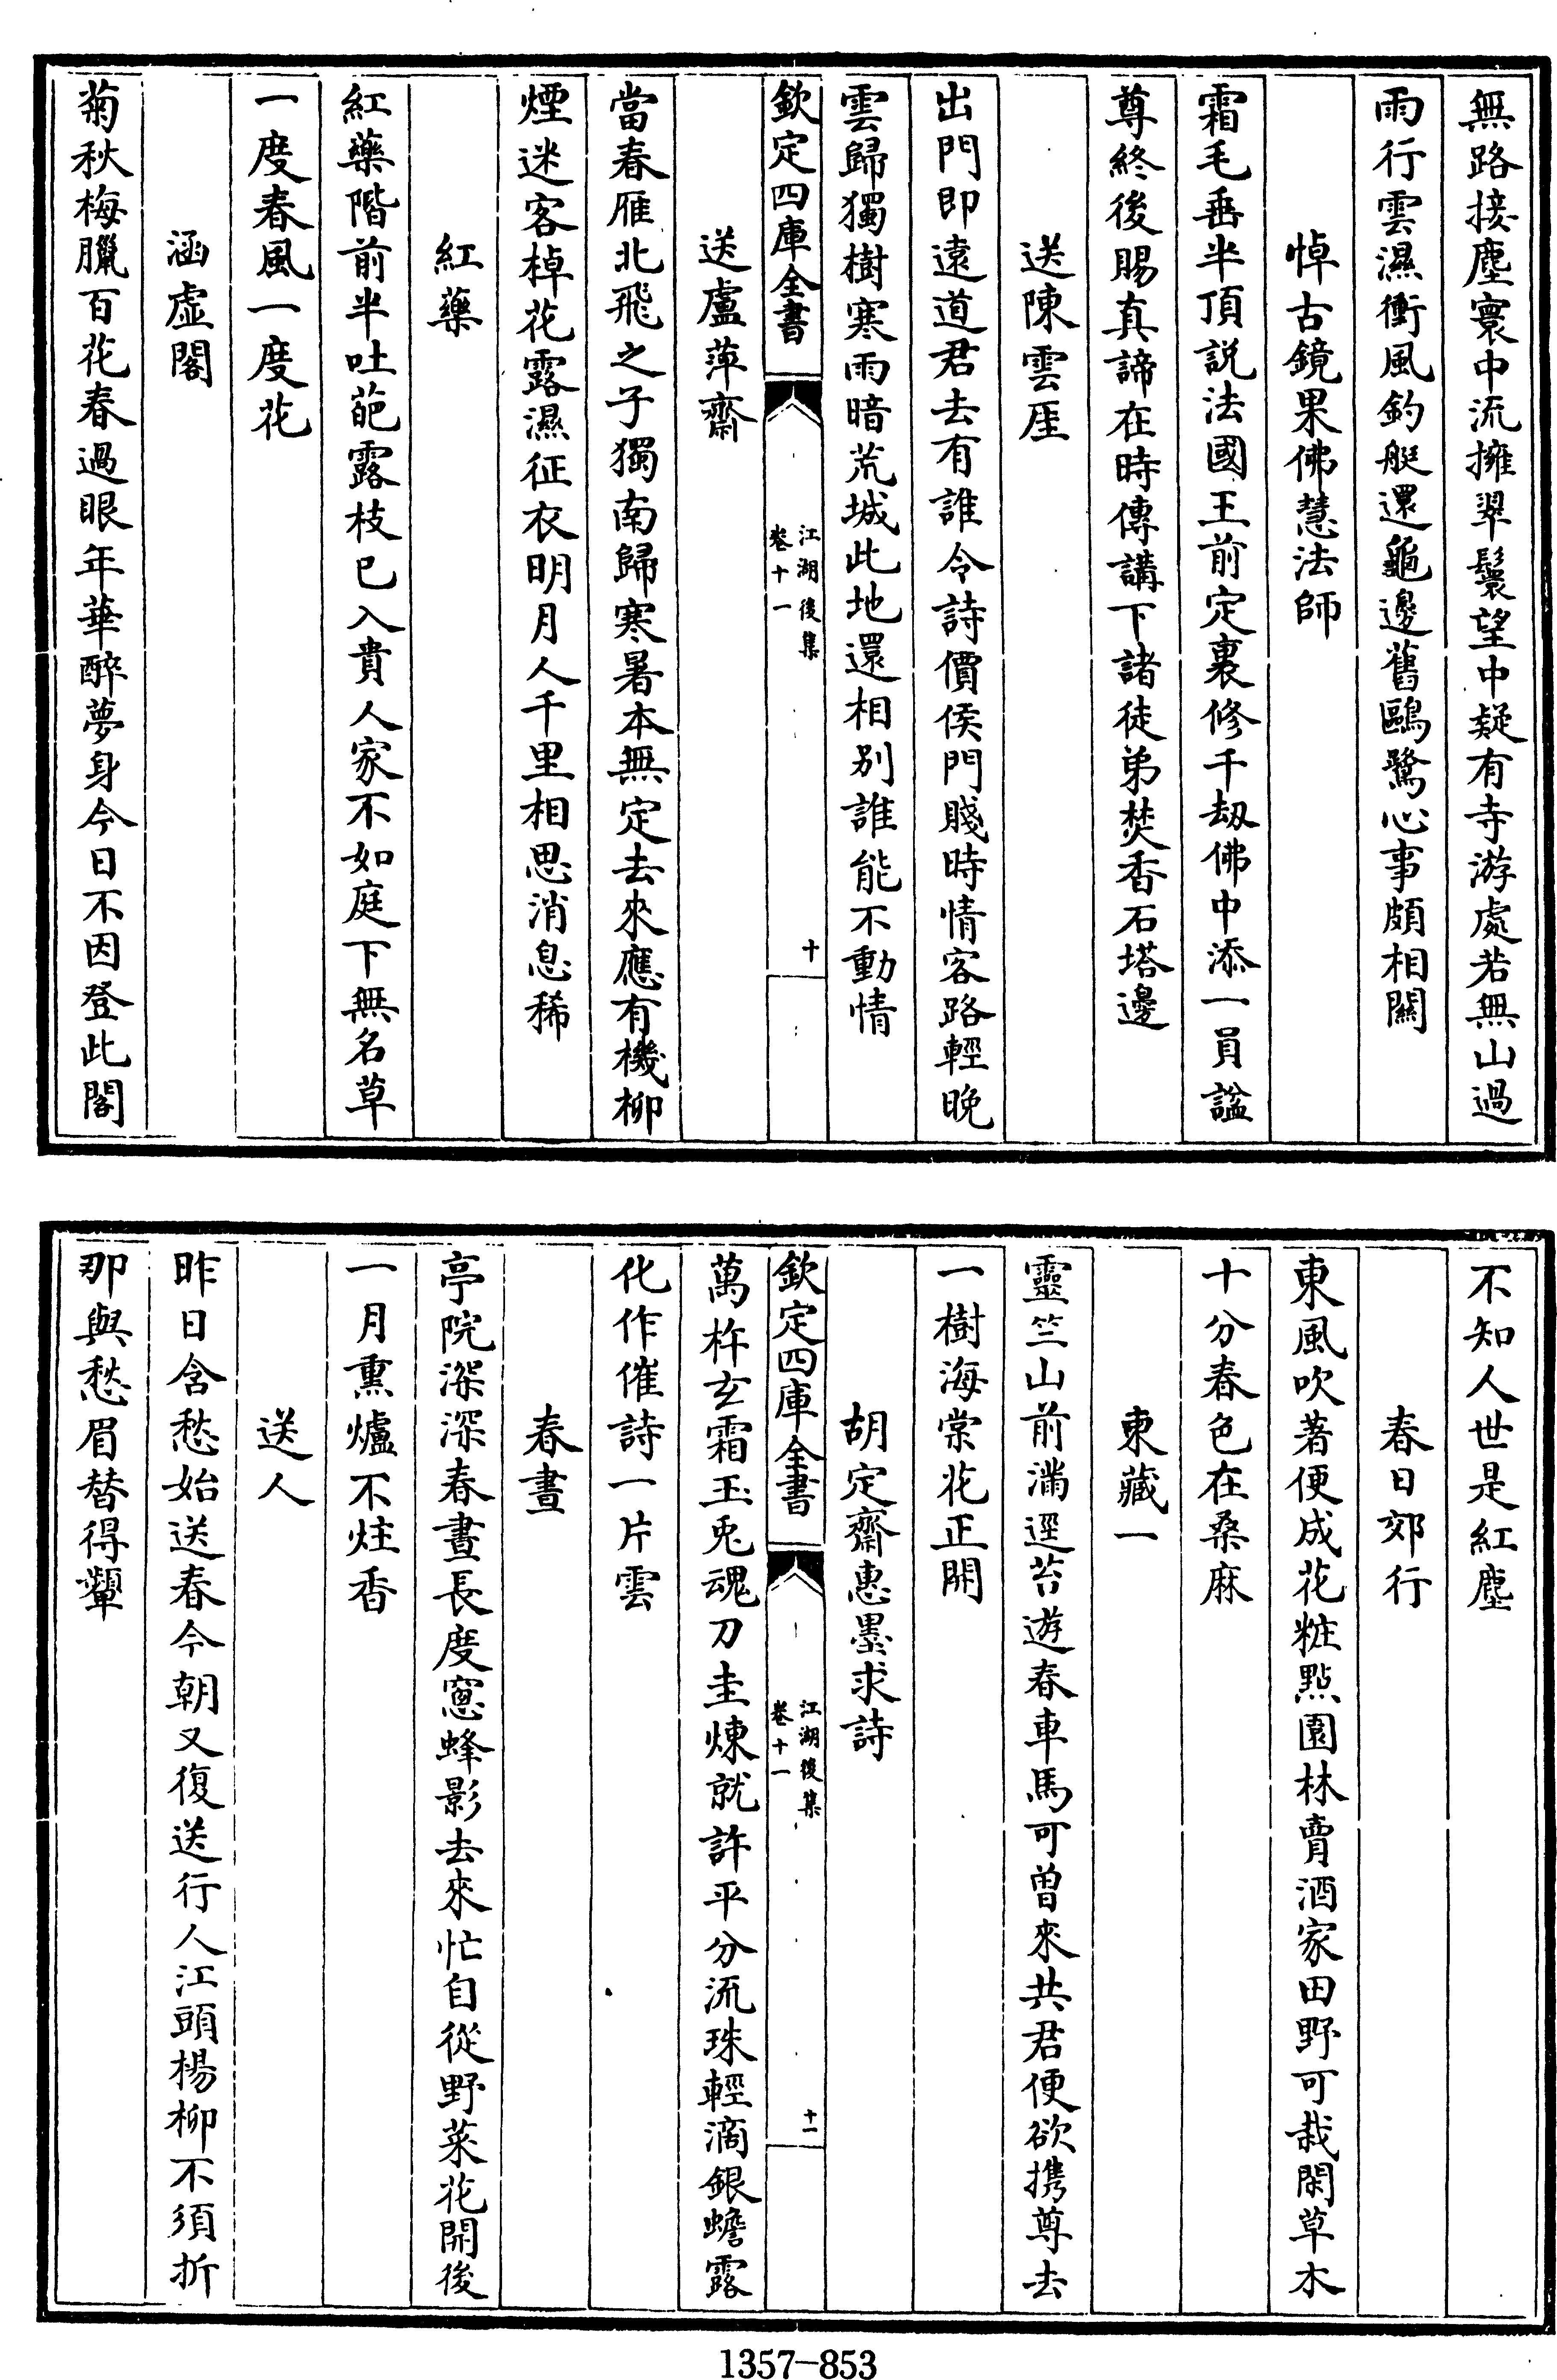 無路接塵寰中流擁翠鬟望中疑有寺游處若無山過
雨行雲濕衝風釣艇還龜邊舊鷗鷺心事頗相關
悼古鏡果佛慧法師
霜毛垂半頂説法國王前定裏修千劫佛中添一員諡
尊終後賜真諦在時傳講下諸徒弟焚香石塔邊
送陳雲厓
出門即遠道君去有誰令詩價侯門賤時情客路輕晚
雲歸獨樹寒雨暗荒城此地還相別誰能不動情
欽定四庫全書
江湖後集
卷十一
十
送盧萍齋
當春雁北飛之子獨南歸寒暑本無定去來應有機柳
煙迷客棹花露濕征衣明月人千里相思消息稀
紅藥
紅藥階前半吐葩露枝已入貴人家不如庭下無名草
一度春風一度花
涵虛閣
菊秋梅臘百花春過眼年華醉夢身今日不因登此閣
不知人世是紅塵
春日郊行
東風吹著便成花粧點園林賣酒家田野可栽閑草木
十分春色在桑麻
東藏一
靈竺山前滿逕苔遊春車馬可曾來共君便欲携尊去
一樹海棠花正開
胡定齋惠墨求詩
欽定四庫全書
江湖後集
卷十一
十一
萬杵玄霜玉兎魂刀圭煉就許平分流珠輕滴銀蟾露
化作催詩一片雲
春晝
亭院深深春晝長度窻蜂影去來忙自從野菜花開後
一月熏爐不炷香
送人
昨日含愁始送春今朝又復送行人江頭楊柳不須折
那與愁眉替得顰
1357-853